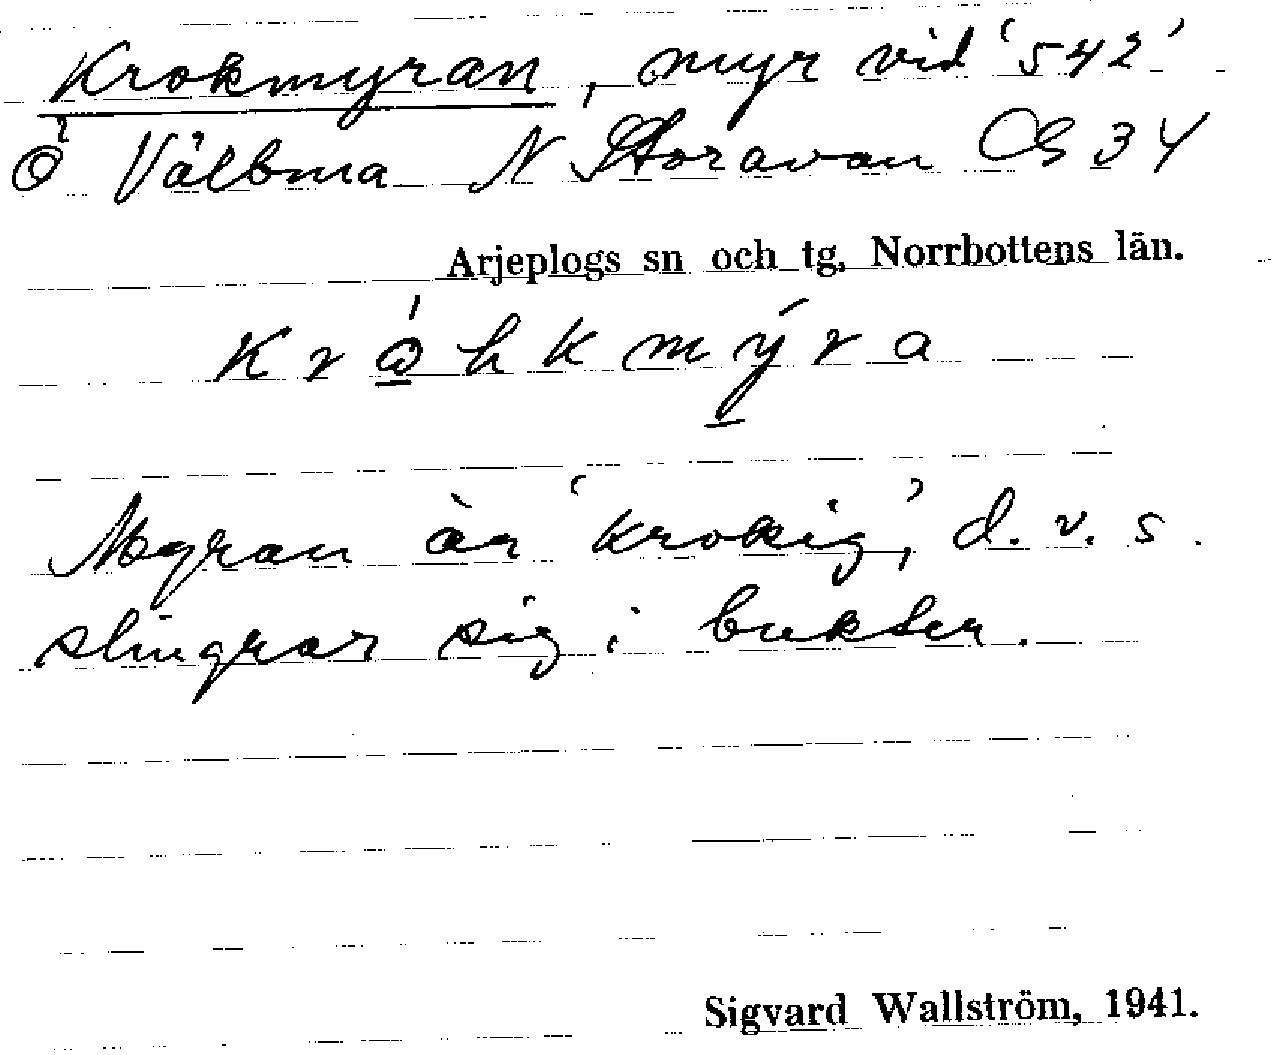 Krokmyran, myr vid '542'
Ö Välbma N Storavan CG 34
Arjeplogs sn och tg, Norrbottens län.
Myran är 'krokig', d. v. s.
slingrar sig i bukter.
Sigvard Wallström, 1941.